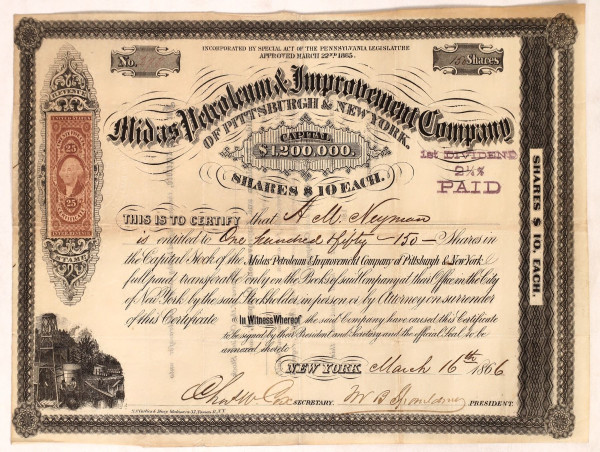 INCORPORATED BY SPECIAL ACT OF THE PENNSYLVANIA LEGISLATURE
APPROVED MARCH 22ND 1865.
No.
150 Shares
Midas Petroleum & Improvement Company
OF PITTSBURGH & NEW YORK.
CAPITAL
$1,200,000.
SHARES $10 EACH.
1st DIVIDEND
2½%
PAID
REVENUE
25
25
STAMP
SHARES $10. EACH.
THIS IS TO CERTIFY that A. M. Neyman
is entitled to One hundred & fifty — 150 — Shares in
the Capital Stock of the Midas Petroleum & Improvement Company of Pittsburgh & New York
full paid, transferable only on the Books of said Company at their Office in the City
of New York by the said Stockholder in person or by Attorney on surrender
of this Certificate In Witness Whereof the said Company have caused this Certificate
to be signed by their President and Secretary and the official Seal to be
annexed hereto
NEW YORK March 16th 1866
SECRETARY.
PRESIDENT.